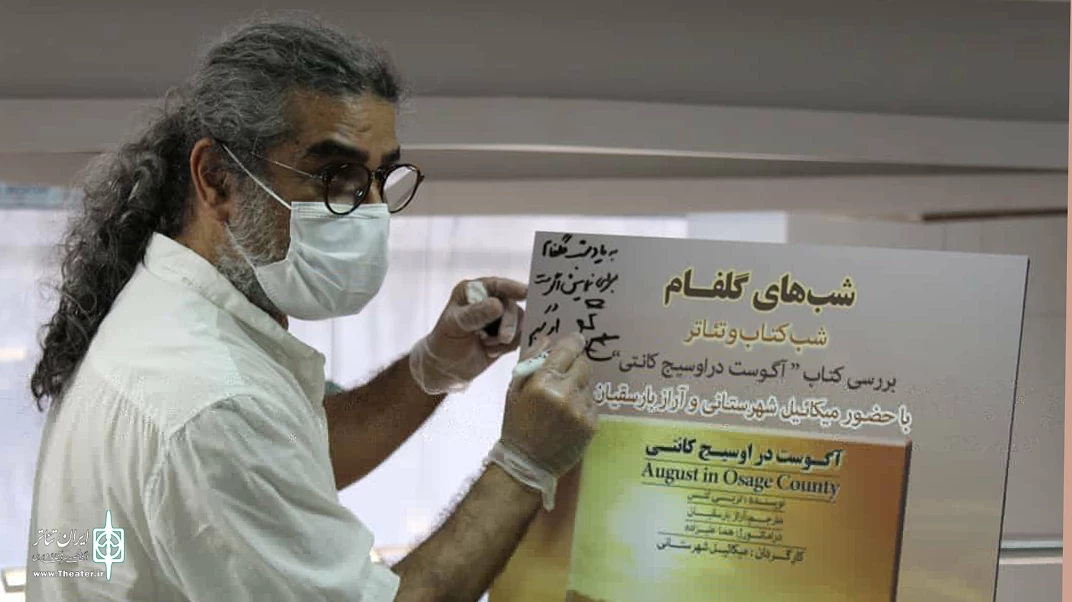 به یاد
برای
در
شب‌های گلفام
شب کتاب و تئاتر
بررسی کتاب " آگوست در اوسیج کانتی "
با حضور میکائیل شهرستانی و آراز بارسقیان
آگوست در اوسیج کانتی
August in Osage County
نویسنده : تریسی لتس
مترجم : آراز بارسقیان
دراماتورژ : هما علیزاده
کارگردان : میکائیل شهرستانی
ایران تئاتر
www.Theater.ir